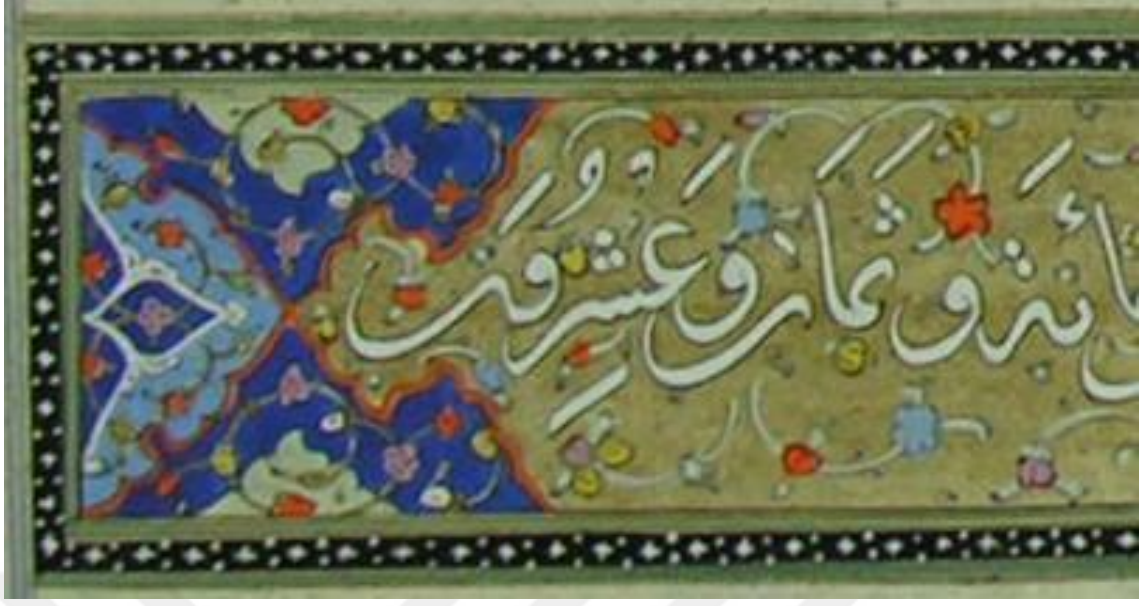 مائة وثمان وعشرون